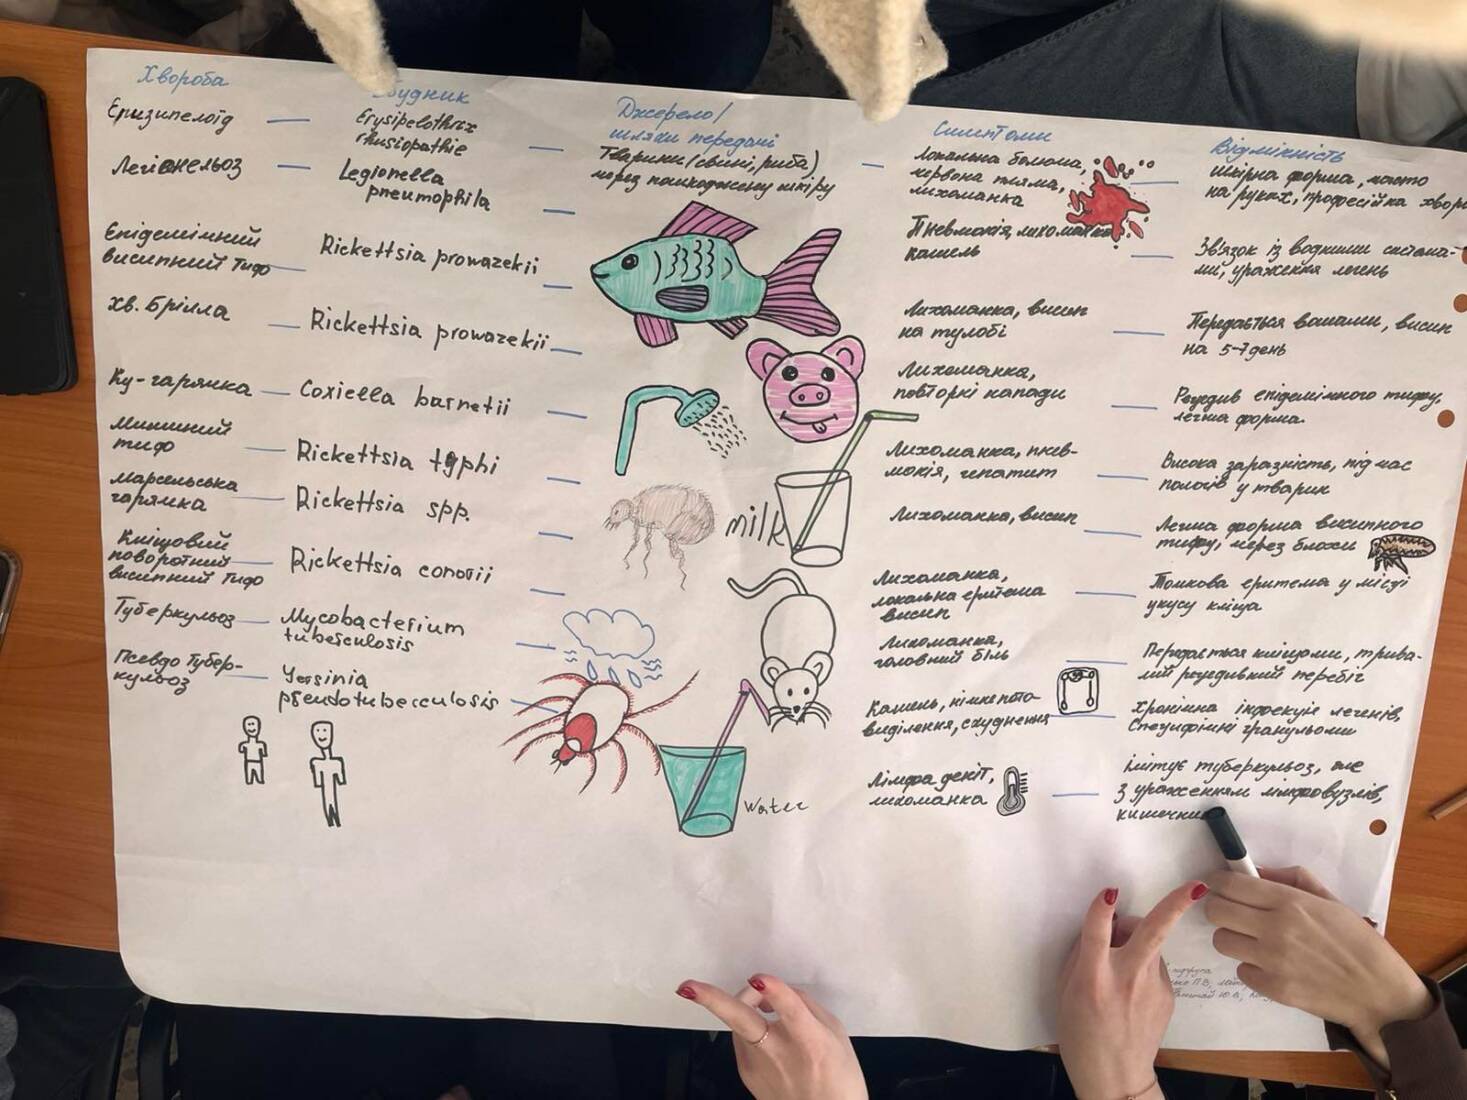 Хвороба
будник
Джерело/
шляхи передачі
Симптоми
Відмінність
Еризипелоїд
Erysipelothrix
rhusiopathie
Тварини (свині, риба)
через пошкоджену шкіру
Локальна болюча,
червона пляма,
лихоманка
шкірна форма, часто
на руках, професійна хвор
Легіонельоз
Legionella
pneumophila
Пневмонія, лихоманка
кашель
Зв'язок із водними система-
ми, ураження легень
Епідемічний
висипний тиф
Rickettsia prowazekii
Лихоманка, висип
на тулобі
Передається вошами, висип
на 5-7 день
хв. Брілла
Rickettsia prowazekii
Лихоманка,
повторкі напади
Рецедив епідемічного тифу,
легша форма.
Ку-гарячка
Coxiella barnetii
Лихоманка, пнев-
монія, гепатит
Висока заразність, під час
пологів у тварин
Мишиний
тиф
Rickettsia typhi
Лихоманка, висип
Легша форма висипного
тифу, через блохи
Марсельська
гарячка
Rickettsia spp.
Лихоманка,
локальна еритема
висип
Точкова еритема у місці
укусу кліща
Кліщовий
поворотний
висипний тиф
Rickettsia conorii
Лихоманка,
головний біль
Передається кліщами, трива-
лий рецедивний перебіг
Туберкульоз
Mycobacterium
tuberculosis
Кашель, нічне пото-
виділення, схуднення
Хронічна інфекція легенів,
Специфічні гранульоми
Псевдо Тубер-
кульоз
Yersinia
pseudotuberculosis
Лімфаденіт,
лихоманка
Імітує туберкульоз, але
з ураженням мікровузлів,
кишечник
milk
Water